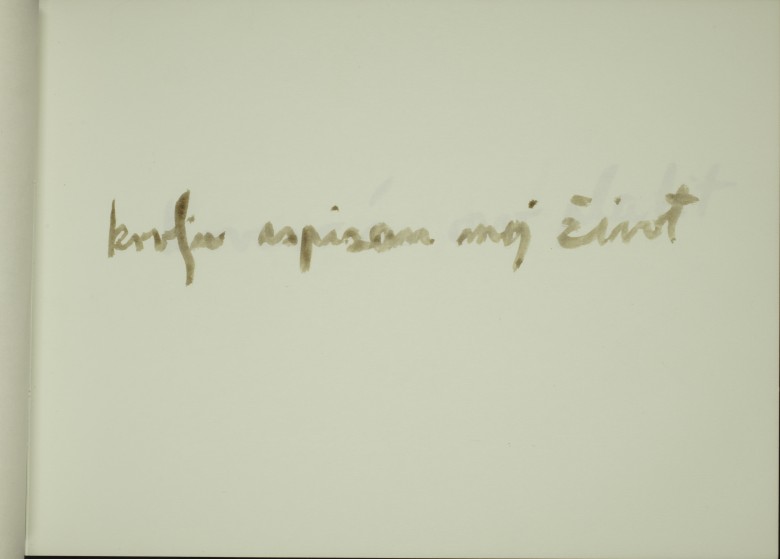 krvlju ispisan moj život